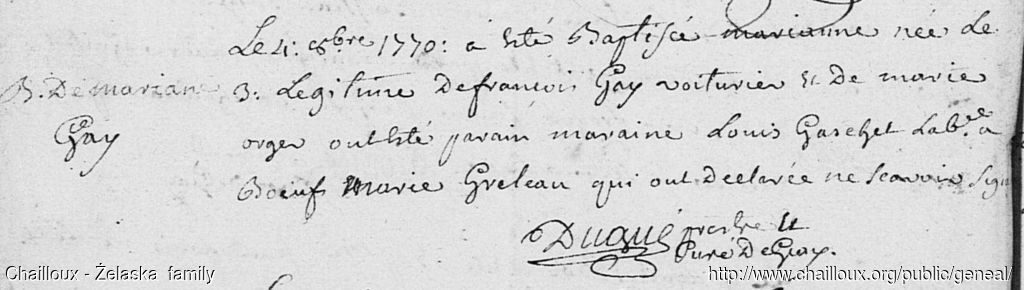 Le 4: 8bre 1770: a Eté Baptisée marianne née Le
B. De mariane
3: Legitime De francois Gay voiturier Et De marie
Gay
orger ont Eté parain maraine Louis Gachet Labr. a
Boeufs Marie Greleau qui ont declarée ne scavoir sign
Dugué prestre Et
Curé De Gay.
Chailloux - Żelaska family
http://www.chailloux.org/public/geneal/